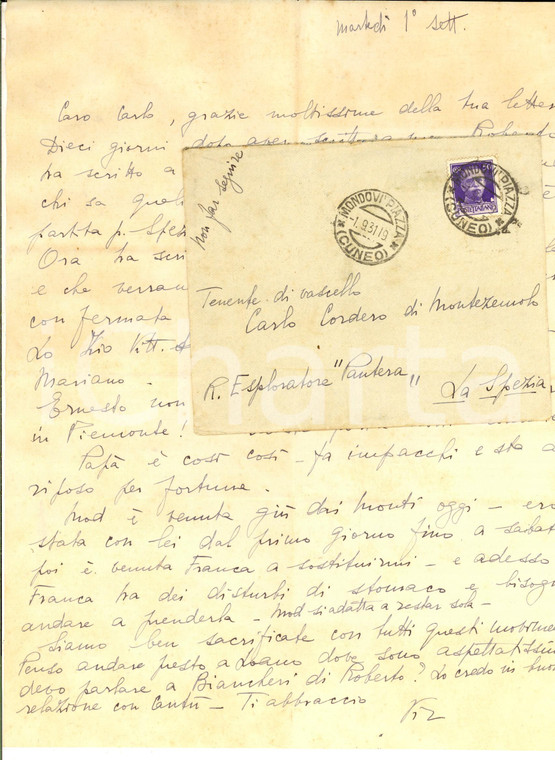 Martedì 1° Sett.
Caro Carlo, grazie moltissimo della tua lettera
Dieci giorni dopo aver scritto Rolando
ha scritto a
chi sa quali
partita p. Spezia
Ora ha scritto
e che verranno
con fermata
Lo Zio Vitt.
Mariano -
Ernesto non
in Piemonte!
Papà è così così - fa impacchi e sta a
riposo per fortuna -
Mod è venuta giù dai monti oggi - ero
stata con lei dal primo giorno fino a sabato
poi è venuta Franca a sostituirmi - e adesso
Franca ha dei disturbi di stomaco e bisogna
andare a prenderla - Mod si adatta a restar sola -
Siamo ben sacrificate con tutti questi
Penso andare presto a Loano dove sono aspettatissima
devo parlare a Biancheri di Roberto? Lo credo in buona
relazione con Cantù - Ti abbraccio
Viz
Non far seguire
MONDOVI' PIAZZA
-1.9.31.19
(CUNEO)
MONDOVI' PIAZZA
(CUNEO)
Tenente di vascello
Carlo Cordero di Montezemolo
R. Esploratore "Pantera"
La Spezia
charta